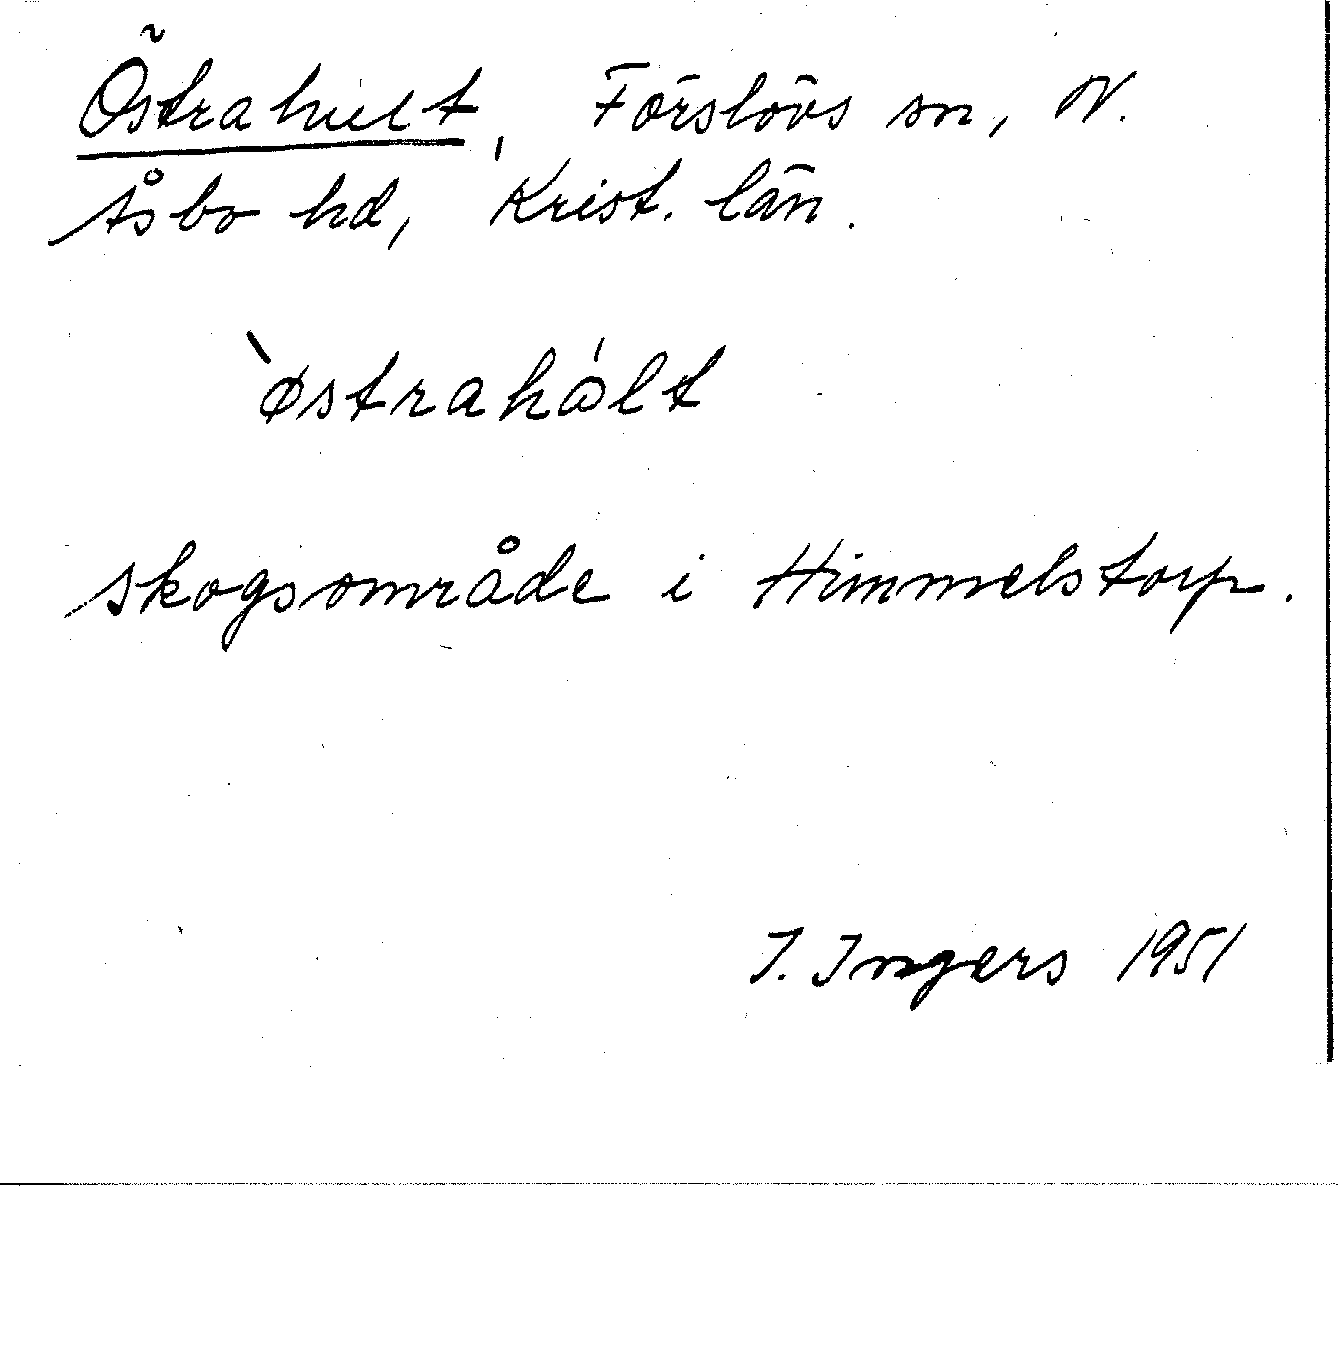 Östrahult, Förslövs sn, N.
Åsbo hd, Krist. län.
`østrahó̵lt
skogsområde i Himmelstorp.
I. Ingers 1951